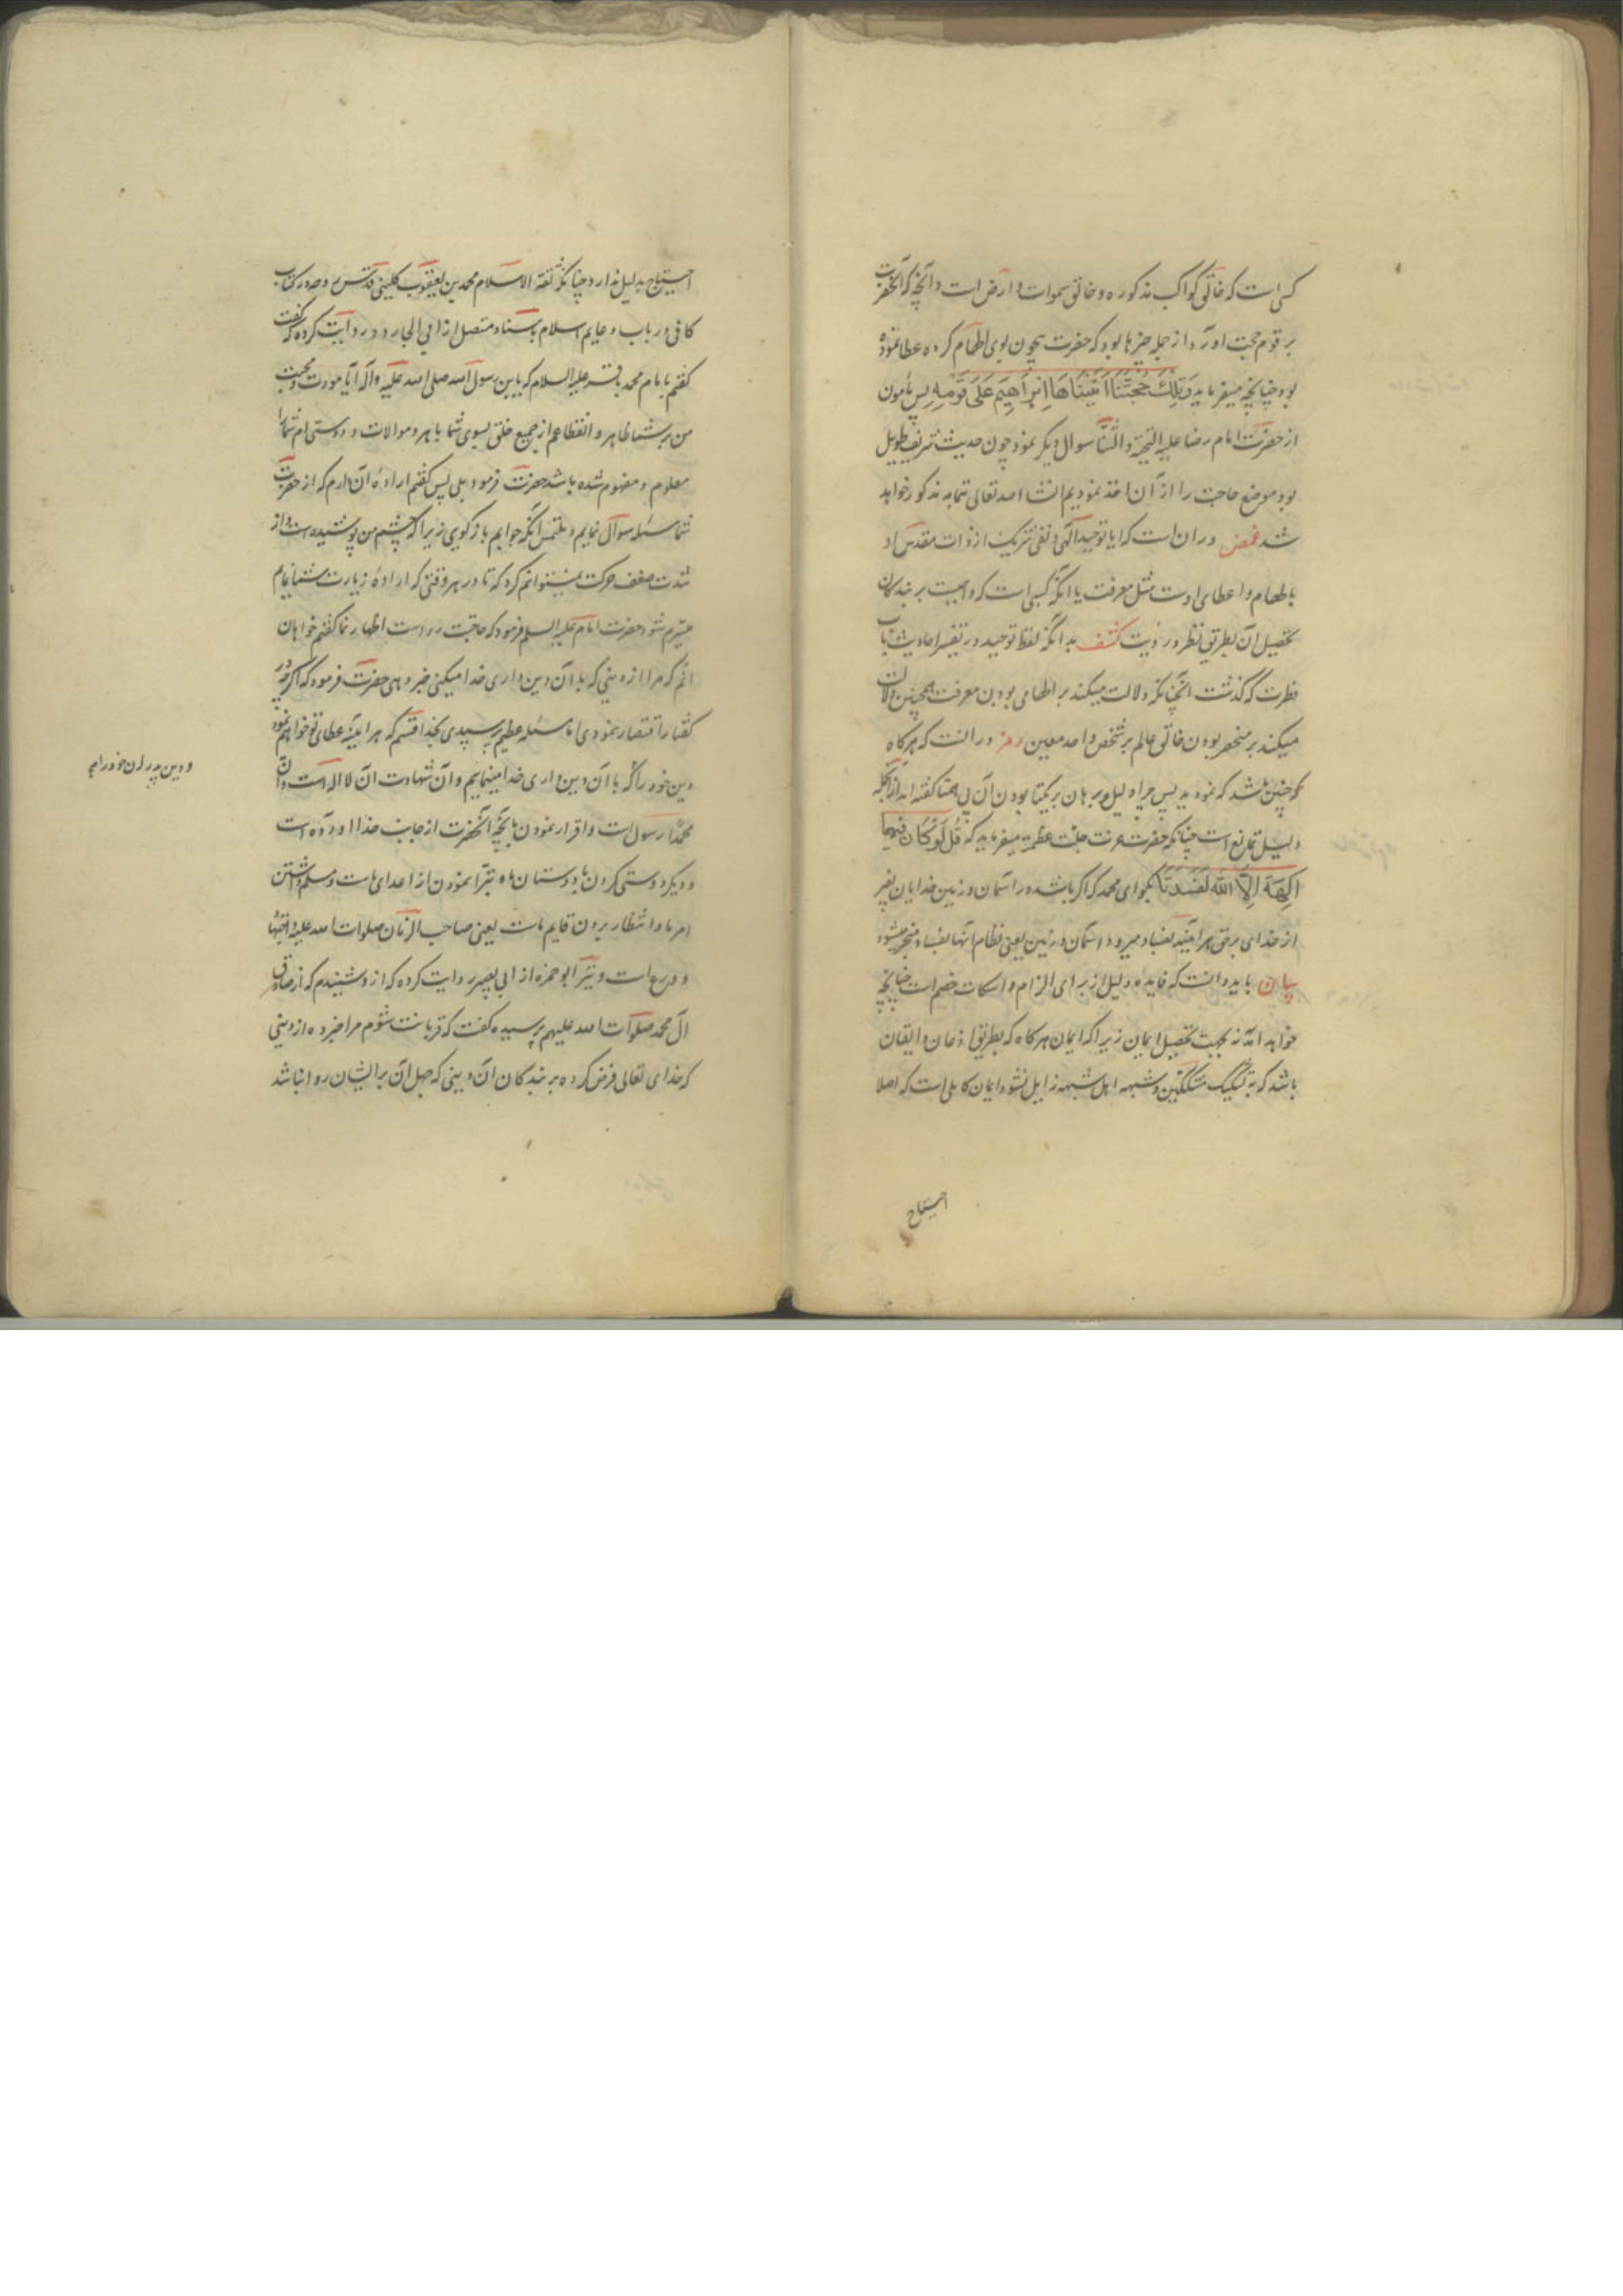 کسی است که خالق کواکب مذکوره و خالق سموات و ارض است و آنچه که آنحضرت
بر قوم حجت اورد از جمله چیزها بود که حضرت بیچون بوی الهام کرده عطا نموده
بود چنانچه میفرماید وَتِلْكَ حُجَّتُنَا اٰتَيْنَاهَا اِبْرَاهِيْمَ عَلَى قَوْمِهِ پس مأمون
از حضرت امام رضا علیه التحیة والثنا سوال دیکر نمود چون حدیث شریف طویل
بود موضع حاجت را از آن اخذ نمودیم انشا الله تعالی تتمه مذکور خواهد
شد غمض در ان است که ایا توحید الهی و نفی شریک از ذات مقدس او
بالهام و اعطای اوست مثل معرفت یا انکه کسبی است که واجبست بر بندکان
تحصیل آن بطریق نظر و رؤیت کشف بدانکه لفظ توحید در تفسیر احادیث باب
فطرت که گذشت انچنانکه دلالت میکند بر الهامی بودن معرفت همچنین دلالت
میکند بر منحصر بودن خالق عالم بر شخص واحد معین رمز در انست که هرکاه
که چنین باشد که نمودید پس چرا دلیل و برهان بر یکتا بودن آن بی همتا کفته اند از آنجمله
دلیل تمانع است چنانکه حضرت عزت جلت عظمته میفرماید که قُل لَوْ كَانَ فِيهِمَا
اٰلِهَةٌ اِلَّا اللّٰهُ لَفَسَدَتَا بکو ای محمد که اکر باشد در اسمان و زمین خدایان بغیر
از خدای برحق هر آینه بفساد میرود اسمان و زمین یعنی نظام آنها بفساد منجر میشود
بیان باید دانست که فایده دلیل از برای الزام و اسکات خصم است چنانچه
خواهد امد نه بجهت تحصیل ایمان زیرا که ایمان هرکاه که بطریق اذعان و ایقان
باشد که به تشکیک مشککین و شبهه اهل شبهه زایل نشود ایمان کاملی است که اصلا
احتیاج
احتیاج بدلیل ندارد چنانکه ثقة الاسلام محمد بن یعقوب کلینی قدس روحه در کتاب
کافی در باب دعایم اسلام باسناد متصل از ابی الجارود روایت کرده که گفت
کفتم بامام محمد باقر علیه السلام که یابن رسول الله صلی الله علیه وآله آیا مودت و محبت
من بر شما ظاهر و انقطاعم از جمیع خلق بسوی شما باهر و موالات و دوستی ام شما را
معلوم و مفهوم شده باشد حضرت فرمود بلی پس کفتم اراده آن دارم که از حضرت
شما مسئله سوال نمایم و ملتمس انکه جوابم باز کویی زیرا که چشم من پوشیده است و از
شدت ضعف حرکت نمیتوانم کرد که تا در هر وقتی که اراده زیارت شما نمایم
میسرم شود حضرت امام علیه السلم فرمود که حاجتت رواست اظهار نما کفتم خواهان
انم که مرا از دینی که با آن دین داری خدا میکنی خبر دهی حضرت فرمود که اکرچه در
کفتار اقتصار نمودی اما مسئله عظیم پرسیدی بخدا قسم که هراینه عطای تو خواهم نمود
دین خود را که با آن دین داری خدا مینماییم و آن شهادت آن لا اله است و آن
و دین پدران خود را هم
محمدا رسول است و اقرار نمودن بانچه آنحضرت از جانب خدا اورده است
و دیکر دوستی کردن با دوستان ما و تبرا نمودن از اعدای ماست و مسلم داشتن
امر ما و انتظار بردن قایم ماست یعنی صاحب الزمان صلوات الله علیه و اجتهاد
و ورع است و نیز ابو حمزه از ابی بصیر روایت کرده که از او شنیدم که از صادق
آل محمد صلوات الله علیهم پرسیده گفت که قربانت شوم مرا خبر ده از دینی
که خدای تعالی فرض کرده بر بندکان ان دینی که جهل آن بر ایشان روا نباشد